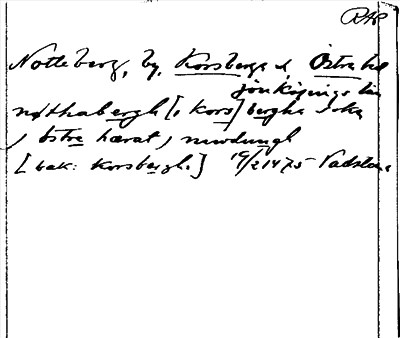 RAP
Notteberg, by, Korsberga s, Östra hd
Jönköpings län
nøthabergh [i kors] bergha sokn
i østra hærat i niwdungh
[bak: Korsbergh.] 19/2 1475 Vadstena